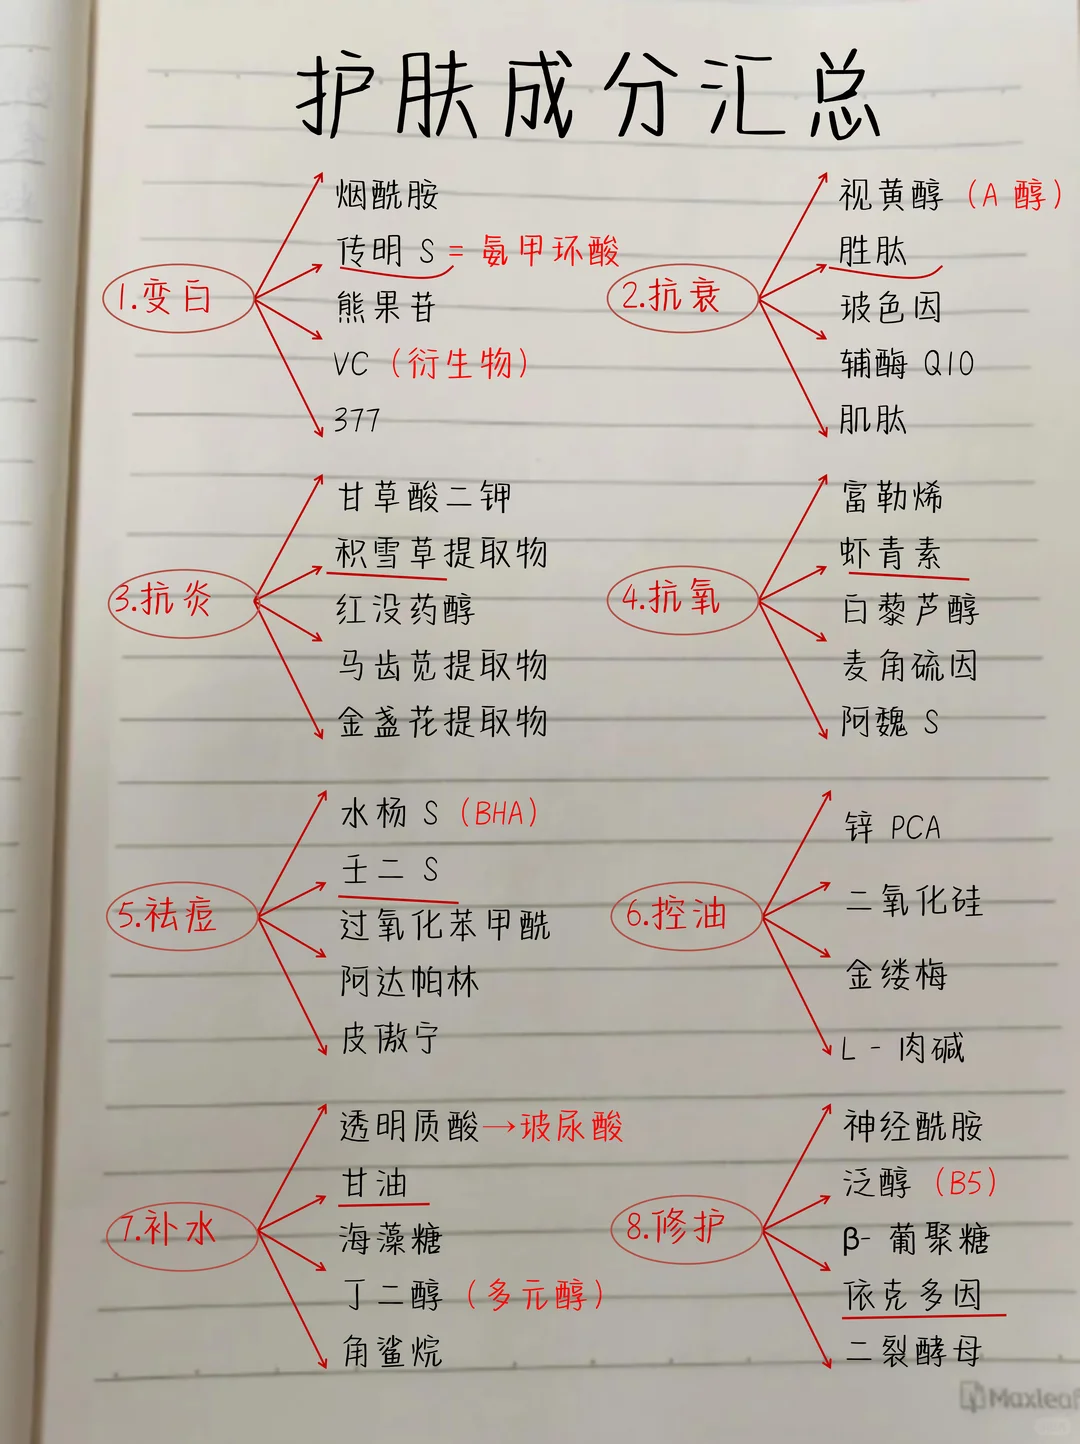 护肤成分汇总
1.变白
烟酰胺
传明 S = 氨甲环酸
熊果苷
VC（衍生物）
377
2.抗衰
视黄醇（A 醇）
胜肽
玻色因
辅酶 Q10
肌肽
3.抗炎
甘草酸二钾
积雪草提取物
红没药醇
马齿苋提取物
金盏花提取物
4.抗氧
富勒烯
虾青素
白藜芦醇
麦角硫因
阿魏 S
5.祛痘
水杨 S（BHA）
壬二 S
过氧化苯甲酰
阿达帕林
皮傲宁
6.控油
锌 PCA
二氧化硅
金缕梅
L - 肉碱
7.补水
透明质酸→玻尿酸
甘油
海藻糖
丁二醇（多元醇）
角鲨烷
8.修护
神经酰胺
泛醇（B5）
β- 葡聚糖
依克多因
二裂酵母
Maxleaf